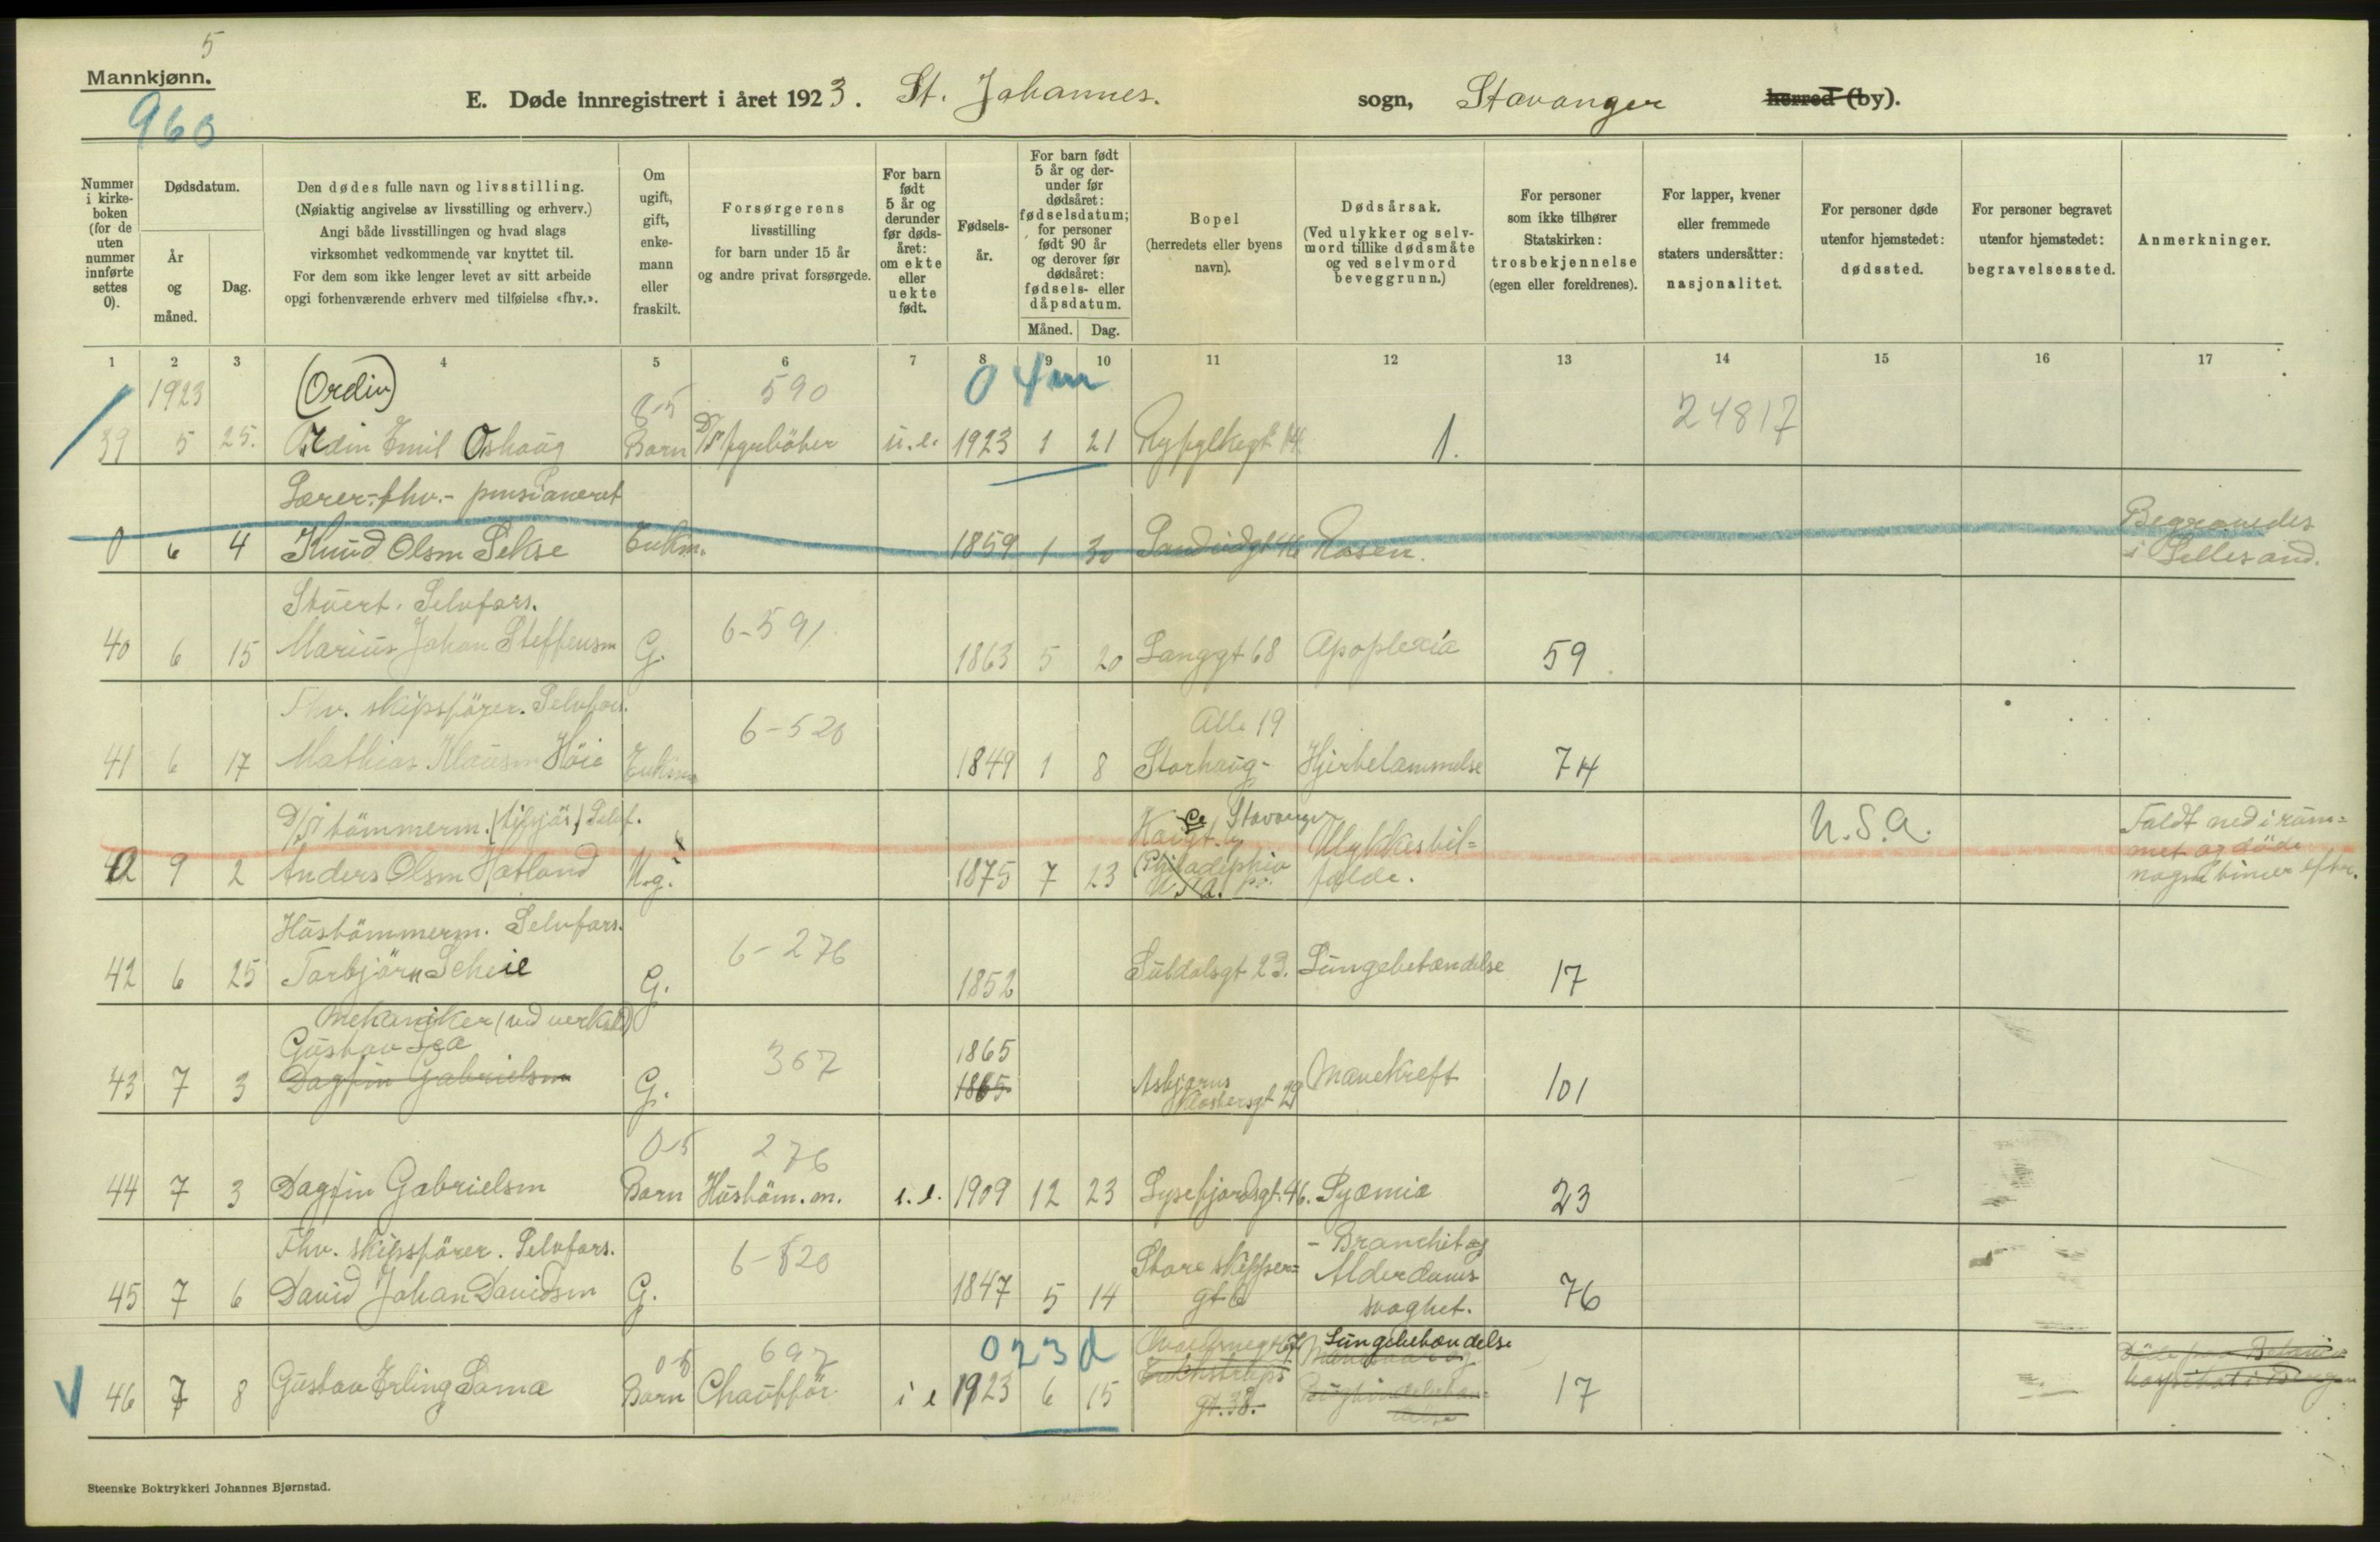 5
Mannkjønn.
960
E. Døde innregistrert i året 1923. St. Johannes. sogn, Stavanger herred (by).
Nummer i kirke- boken (for de uten nummer innførte settes 0).
Dødsdatum.
År og måned.
Dag.
Den dødes fulle navn og livsstilling.
(Nøiaktig angivelse av livsstilling og erhverv.)
Angi både livsstillingen og hvad slags
virksomhet vedkommende var knyttet til.
For dem som ikke lenger levet av sitt arbeide
opgi forhenværende erhverv med tilføielse «fhv.».
Om ugift, gift, enke- mann eller fraskilt.
Forsørgerens
livsstilling
for barn under 15 år
og andre privat forsørgede.
For barn født 5 år og derunder før døds- året: om ekte eller uekte født.
Fødsels- år.
For barn født 5 år og der- under før dødsåret: fødselsdatum; for personer født 90 år og derover før dødsåret: fødsels- eller dåpsdatum.
Måned. Dag.
Bopel
(herredets eller byens
navn).
Dødsårsak.
(Ved ulykker og selv-
mord tillike dødsmåte
og ved selvmord
beveggrunn.)
For personer
som ikke tilhører
Statskirken:
trosbekjennelse
(egen eller foreldrenes).
For lapper, kvener
eller fremmede
staters undersåtter:
nasjonalitet.
For personer døde
utenfor hjemstedet:
dødssted.
For personer begravet
utenfor hjemstedet:
begravelsessted.
Anmerkninger.
1 2 3 4 5 6 7 8 9 10 11 12 13 14 15 16 17
1923 (Ordin) 590 0 4 m
8-5 24817
39 5 25. Ordin Emil Oshaug Barn D/S fyrböter u.e. 1923 1 21 Ryfylkegt 14. 1.
Lærer-fhv.- pensioneret
0 6 4 Knud Olsen Sekse Enkem. 1859 1 30 Sandvidgt 46 Rosen. Begravedes i Lillesand.
Stuert. Selvfors.
40 6 15 Marius Johan Steffensen G. 6-591. 1863 5 20 Langgt 68 Apoplexia 59
Fhv. skipsförer. Selvfors. 6-520 Alle 19
41 6 17 Mathias Klausen Höie Enkem 1849 1 8 Storhaug- Hjertelammelse 74
D/S tömmerm. Selvf. Stavanger U.S.A.
0 9 2 Anders Olsen Hatland U.g. 1875 7 23 Philadelphia U.S.A. Ulykkestil-
fælde. Faldt ned i rum-
met og döde
nogen timer efter.
Hustömmerm. Selvfors. 6-276
42 6 25 Torbjörn Scheie G. 1852 Suldalsgt 23. Lungebetændelse 17
Mekaniker (ved verksted)
Gustav Lea 367 1865
43 7 3 Dagfin Gabrielsen G. 1865 Asbjørns
Klostersgt 29 Mavekreft 101
0-5 276
44 7 3 Dagfin Gabrielsen Barn Hustöm.m. i.e. 1909 12 23 Lysefjordsgt. 46. Pyæmia 23
Fhv. skipsförer. Selvfors. 6-520 - Bronchit og
45 7 6 David Johan Davidsen G. 1847 5 14 Store skipper-
gt 6 Alderdoms
svaghet. 76
0-5 697 023 d Lungebetændelse
46 7 8 Gustav Erling Soma Barn Chaufför i e 1923 6 15 gt. 38. 17
Steenske Boktrykkeri Johannes Bjørnstad.